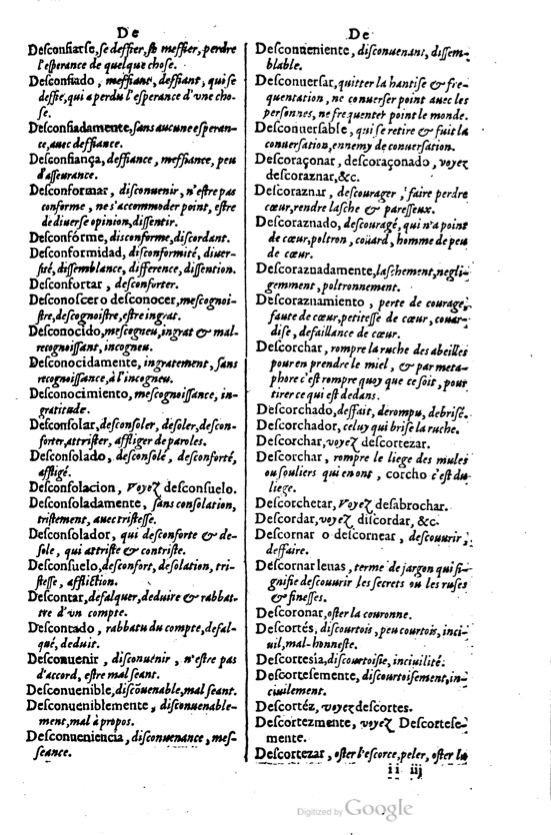 De
Desconfiarse, se deffier, se meffier, perdre
l'esperance de quelque chose.
Desconfiado, meffiant, deffiant, qui se
deffie, qui a perdu l'esperance d'vne cho-
se.
Desconfiadamente, sans aucune esperan-
ce, auec deffiance.
Desconfiança, deffiance, meffiance, peu
d'asseurance.
Desconformar, disconuenir, n'estre pas
conforme, ne s'accommoder point, estre
de diuerse opinion, dissentir.
Desconfórme, disconforme, discordant.
Desconformidad, disconformité, diuer-
sité, dissemblance, difference, dissention.
Desconfortar, desconforter.
Desconoscer o desconocer, mescognoi-
stre, descognoistre, estre ingrat.
Desconocido, mescogneu, ingrat & mal-
recognoissant, incogneu.
Desconocidamente, ingratement, sans
recognoissance, à l'incogneu.
Desconocimiento, mescognoissance, in-
gratitude.
Desconsolar, desconsoler, desoler, descon-
forter, attrister, affliger de paroles.
Desconsolado, desconsolé, desconforté,
affligé.
Desconsolacion, Voyez desconsuelo.
Desconsoladamente, sans consolation,
tristement, auec tristesse.
Desconsolador, qui desconforte & de-
sole, qui attriste & contriste.
Desconsuelo, desconfort, desolation, tri-
stesse, affliction.
Descontar, desalquer, deduire & rabbat-
tre d'vn compte.
Descontado, rabbatu du compte, defal-
qué, deduit.
Desconuenir, disconuenir, n'estre pas
d'accord, estre mal seant.
Desconuenible, disconuenable, mal seant.
Desconueniblemente, disconuenable-
ment, mal à propos.
Desconueniencia, disconuenance, mes-
seance.
De
Desconueniente, disconuenant, dissem-
blable.
Desconuersar, quitter la hantise & fre-
quentation, ne conuerser point auec les
personnes, ne frequenter point le monde.
Desconuersable, qui se retire & fuit la
conuersation, ennemy de conuersation.
Descoraçonar, descoraçonado, voyez
descoraznar, &c.
Descoraznar, descourager, faire perdre
cœur, rendre lasche & paresseux.
Descoraznado, descouragé, qui n'a point
de cœur, poltron, coüard, homme de peu
de cœur.
Descoraznadamente, laschement, negli-
gemment, poltronnement.
Descoraznamiento, perte de courage,
faute de cœur, petitesse de cœur, coüar-
dise, defaillance de cœur.
Descorchar, rompre la ruche des abeilles
pour en prendre le miel, & par meta-
phore c'est rompre quoy que ce soit, pour
tirer ce qui est dedans.
Descorchado, deffait, derompu, debrisé.
Descorchador, celuy qui brise la ruche.
Descorchar, voyez descortezar.
Descorchar, rompre le liege des mules
ou souliers qui en ont, corcho c'est du
liege.
Descorchetar, Voyez desabrochar.
Descordar, voyez discordar, &c.
Descornar o descornear, descouurir,
deffaire.
Descornar lenas, terme de jargon qui si-
gnifie descouurir les secrets ou les ruses
& finesses.
Descoronar, oster la couronne.
Descortés, discourtois, peu courtois, inci-
uil, mal-honneste.
Descortesia, discourtoisie, inciuilité.
Descortesemente, discourtoisement, in-
ciuilement.
Descortéz, voyez descortes.
Descortezmente, voyez Descortese-
mente.
Descortezar, oster l'escorce, peler, oster la
ii iij
Digitized by Google